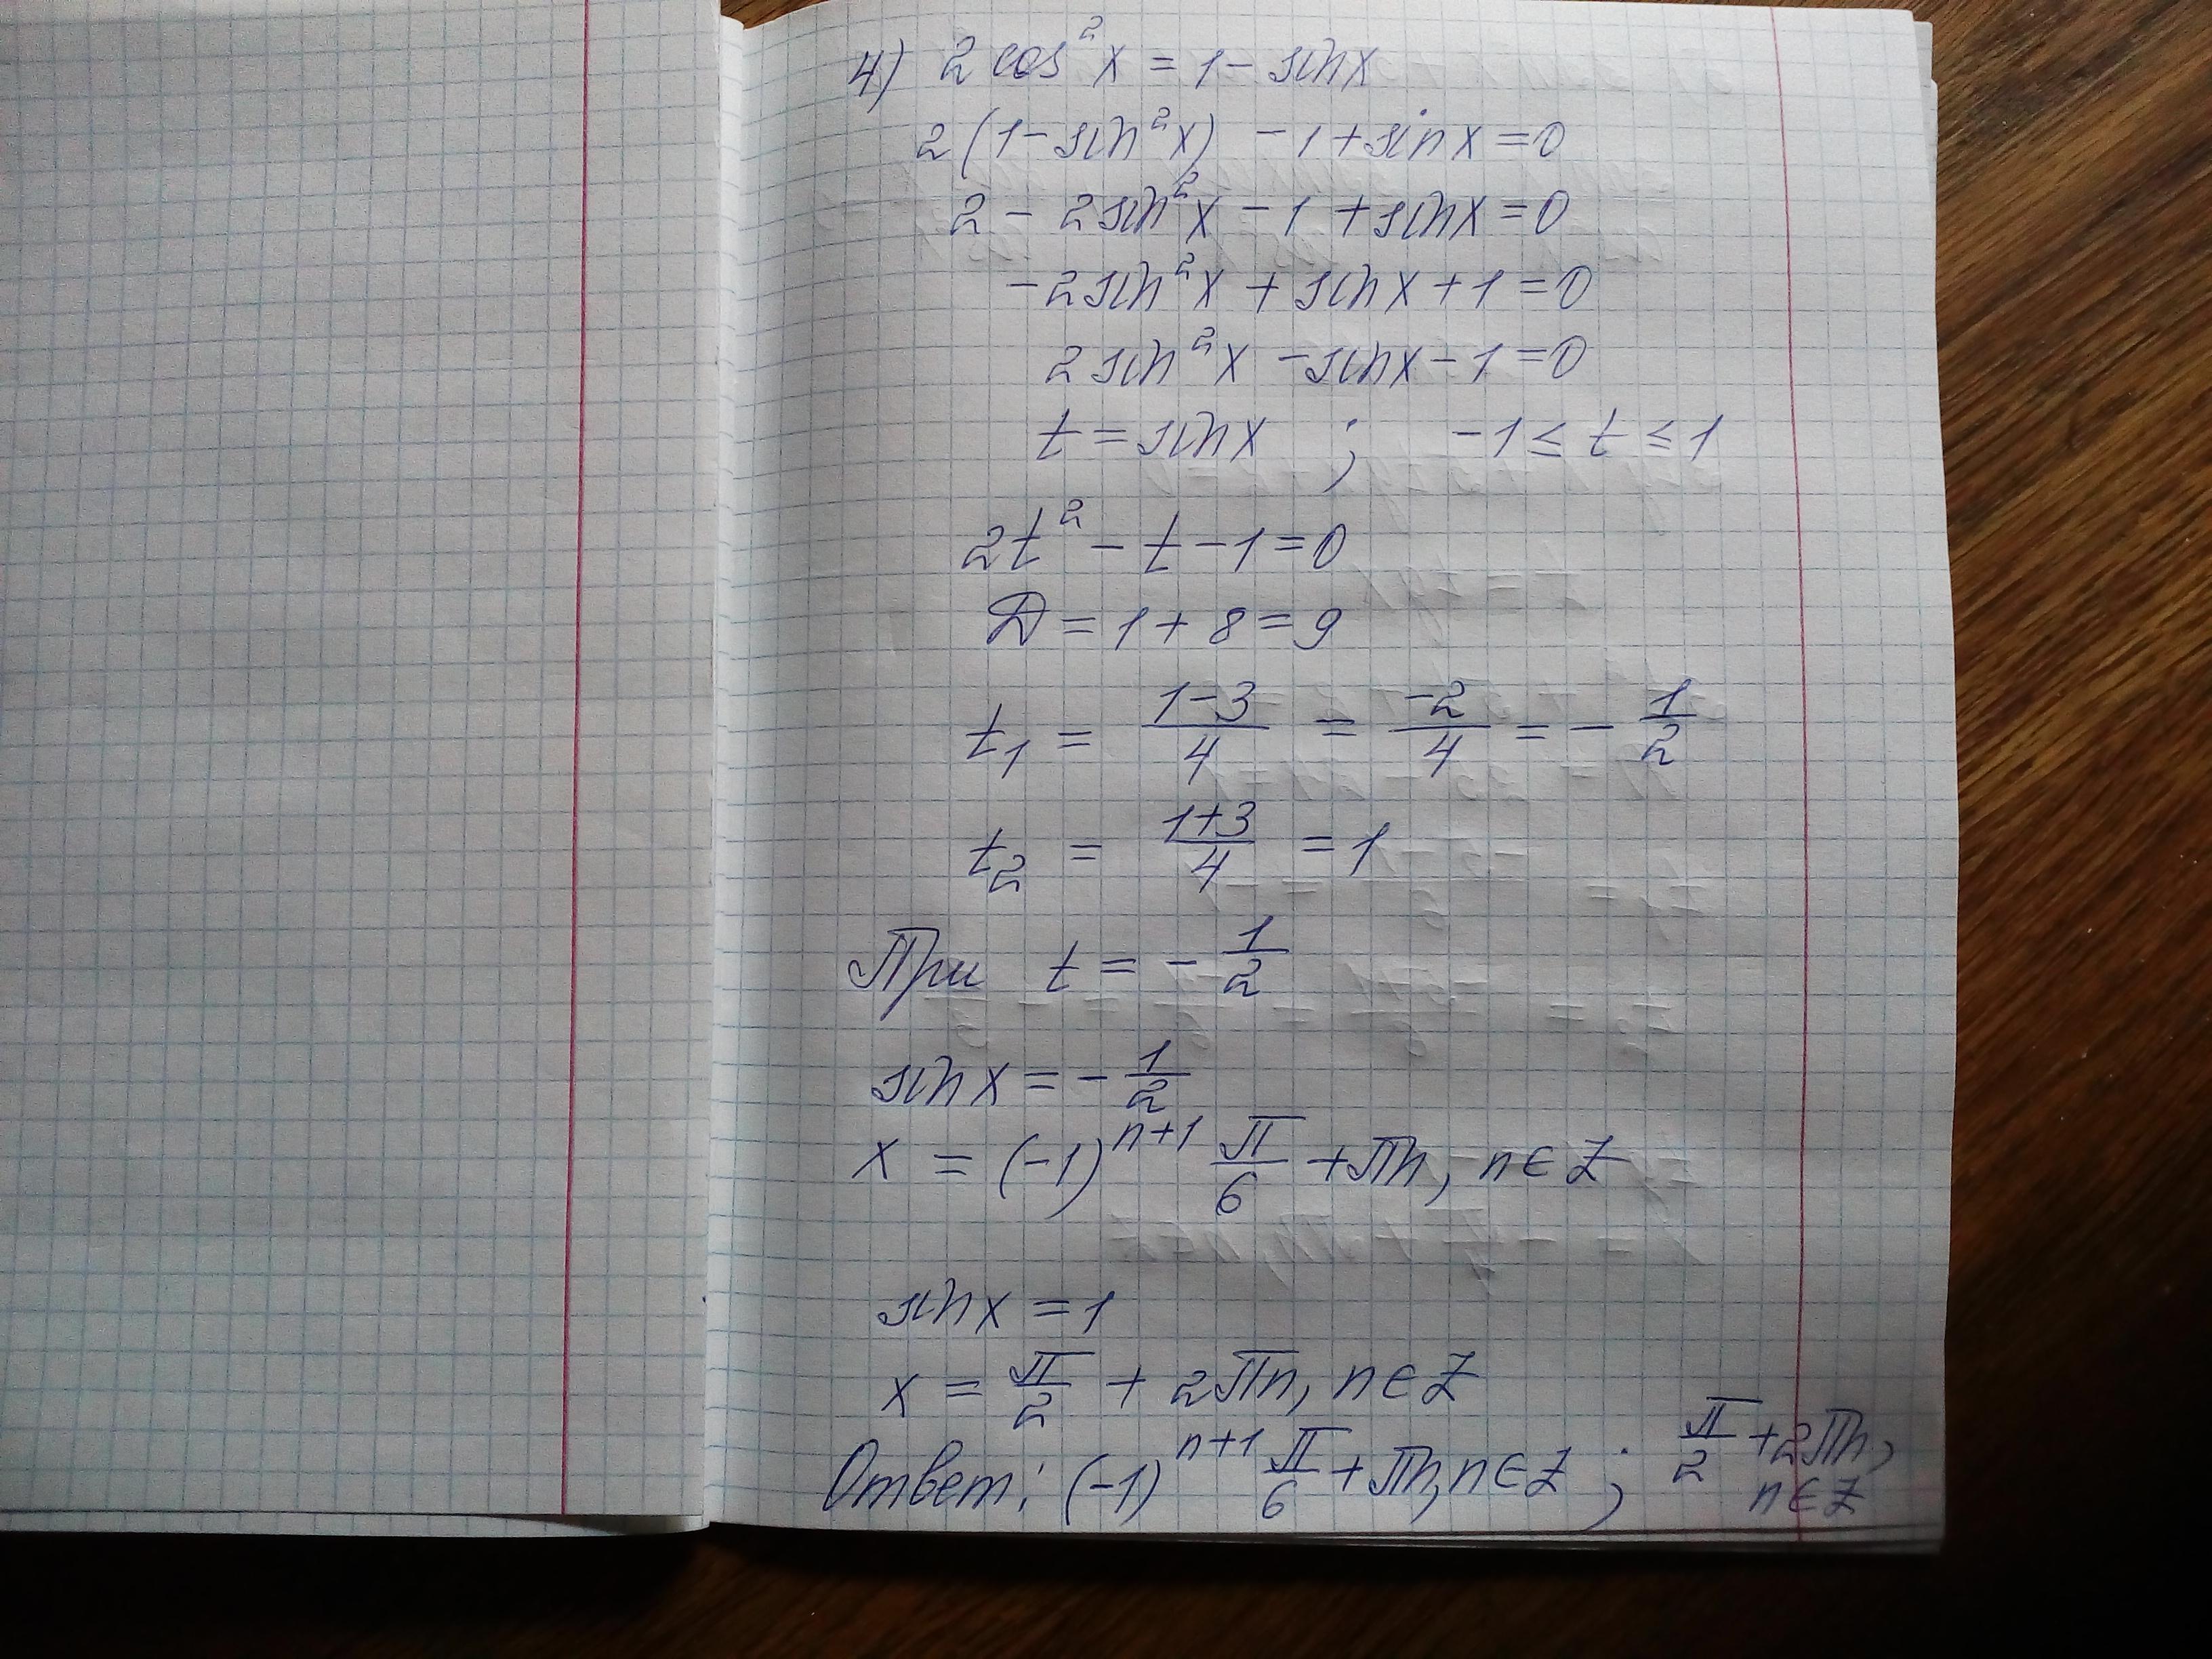 4) 2 cos² x = 1 - sin x
2(1 - sin² x) - 1 + sin x = 0
2 - 2 sin² x - 1 + sin x = 0
- 2 sin² x + sin x + 1 = 0
2 sin² x - sin x - 1 = 0
t = sin x ; -1 ≤ t ≤ 1
2t² - t - 1 = 0
Д = 1 + 8 = 9
t₁ = (1-3)/4 = -2/4 = - 1/2
t₂ = (1+3)/4 = 1
При t = - 1/2
sin x = - 1/2
x = (-1)ⁿ⁺¹ π/6 + πn, n ∈ Z
sin x = 1
x = π/2 + 2πn, n ∈ Z
Ответ: (-1)ⁿ⁺¹ π/6 + πn, n ∈ Z ; π/2 + 2πn,
n ∈ Z